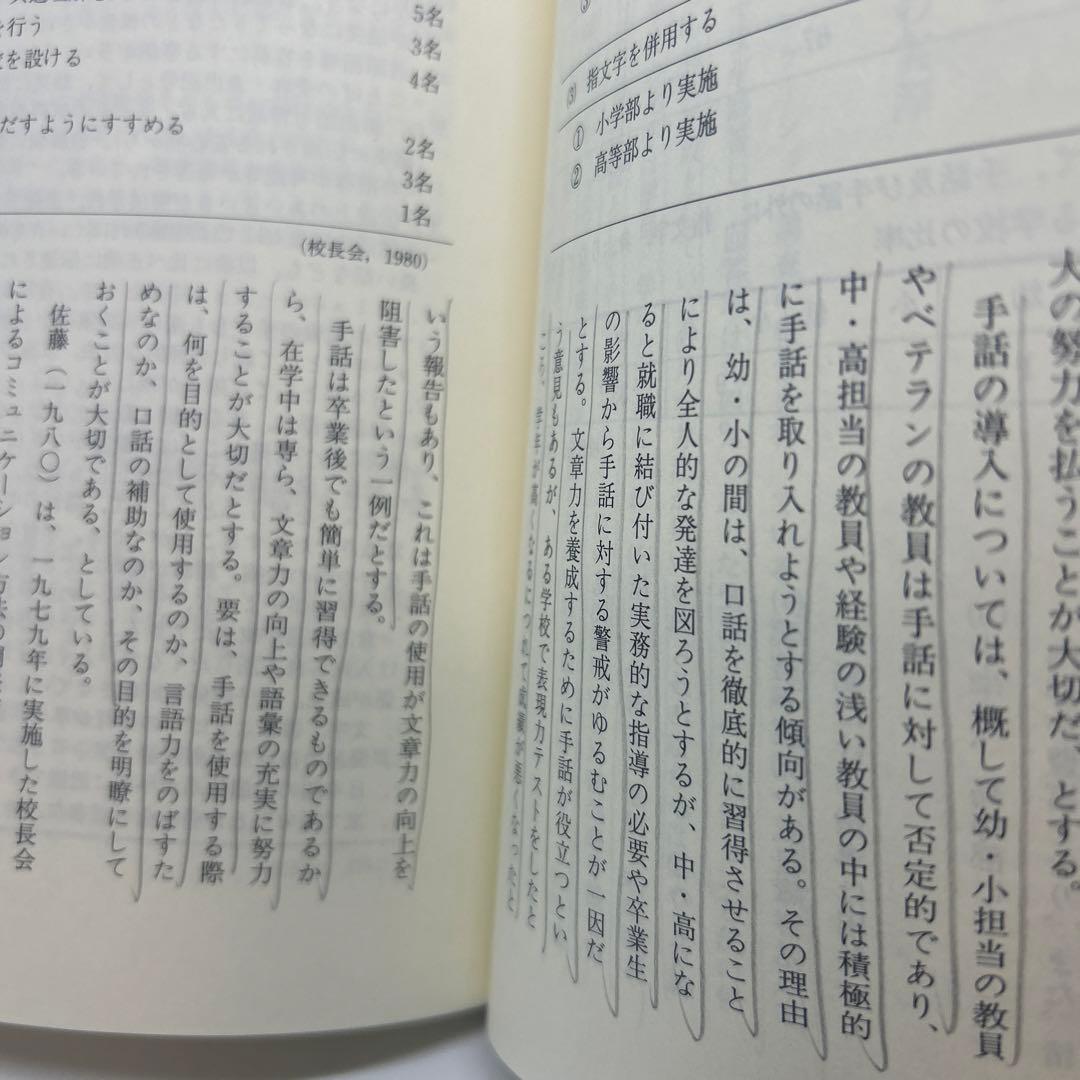 ③
(3) 指文字を併用する
① 小学部より実施
② 高等部より実施
人の努力を払うことが大切だ、とする。
手話の導入については、概して幼・小担当の教員
やベテランの教員は手話に対して否定的であり、
中・高担当の教員や経験の浅い教員の中には積極的
に手話を取り入れようとする傾向がある。その理由
は、幼・小の間は、口話を徹底的に習得させること
により全人的な発達を図ろうとするが、中・高にな
ると就職に結び付いた実務的な指導の必要や卒業生
の影響から手話に対する警戒がゆるむことが一因だ
とする。文章力を養成するために手話が役立つとい
う意見もあるが、ある学校で表現力テストをしたと
ころ、学年が高くなるにつれて成績が悪くなったと
を行う
を設ける
だすようにすすめる
5名
3名
4名
2名
3名
1名
(校長会, 1980)
いう報告もあり、これは手話の使用が文章力の向上を
阻害したという一例だとする。
手話は卒業後でも簡単に習得できるものであるか
ら、在学中は専ら、文章力の向上や語彙の充実に努力
することが大切だとする。要は、手話を使用する際
は、何を目的として使用するのか、言語力をのばすた
めなのか、口話の補助なのか、その目的を明瞭にして
おくことが大切である、としている。
佐藤（一九八〇）は、一九七九年に実施した校長会
によるコミュニケーション方法の